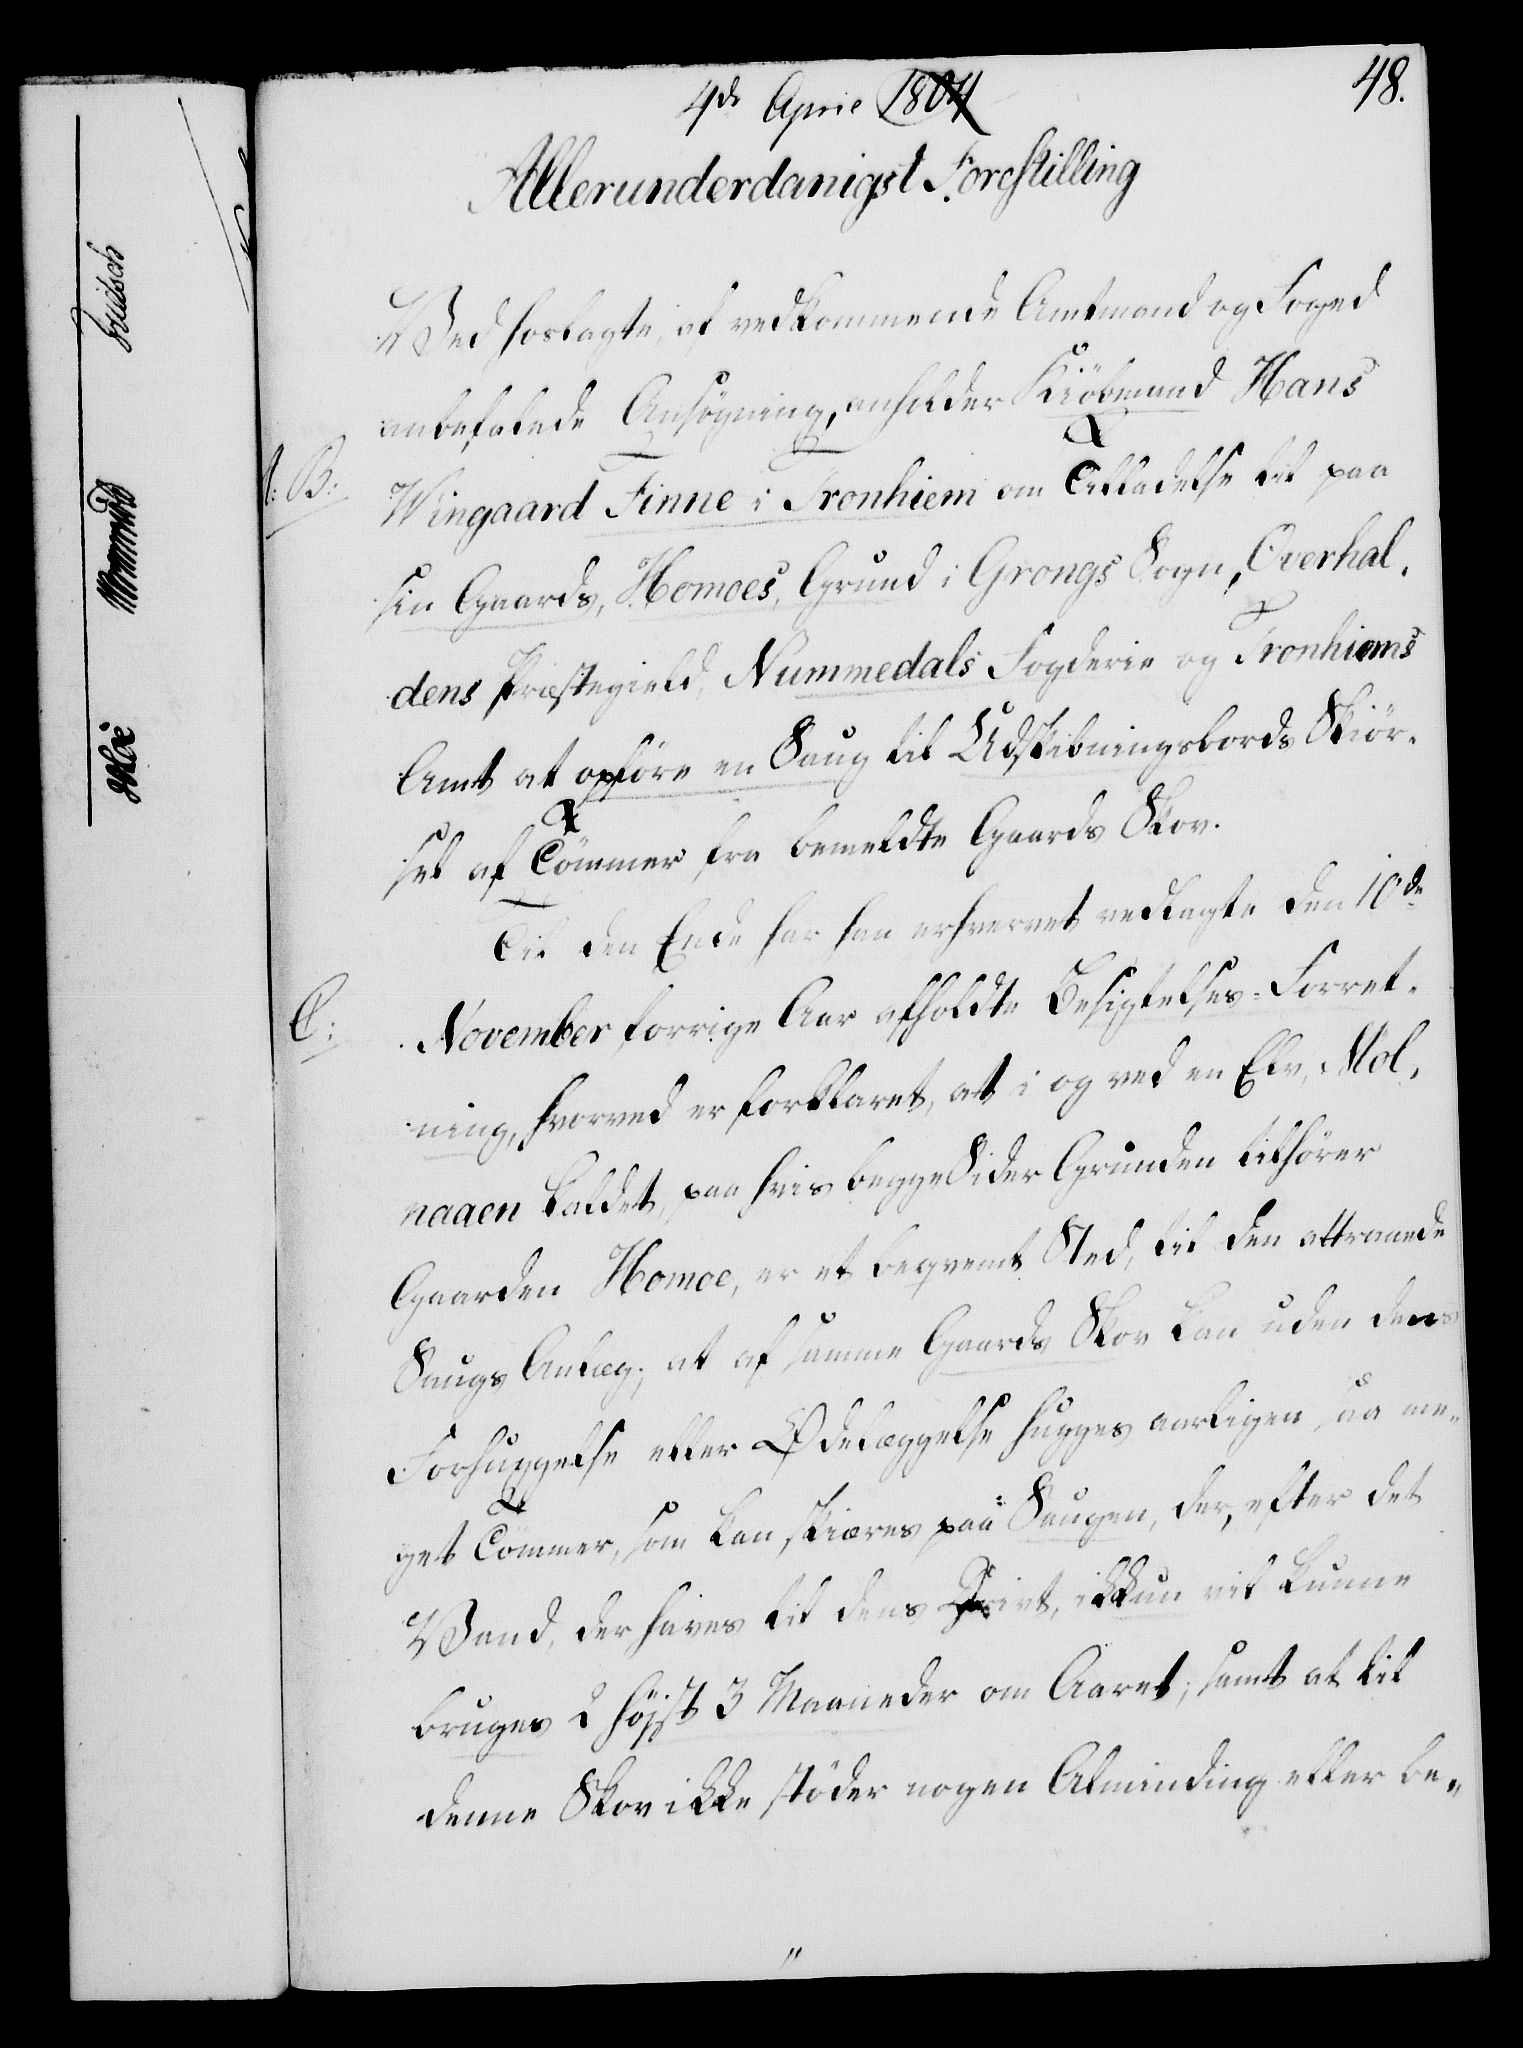 4de April 1804
48.
Allerunderdanigst Forestilling
Ved hoslagte, af vedkommende Amtmand og Foged
anbefalede Ansøgning, anholder Kiöbmand Hans
A: B:
Wingaard Finne i Tronhiem om Tilladelse til paa
sin Gaards, Homoes, Grund i Grongs Sogn, Overhal,
dens Præstegield, Nummedals Fogderie og Tronhiems
Amt at opföre en Saug til Udskibningsbords Skiör-
sel af Tömmer fra bemeldte Gaards Skov.
Til den Ende har han erhvervet vedlagte den 10de
C:
November forrige Aar afholdte Besigtelses-Forret-
ning, hvorved er forklaret, at i og ved en Elv, Mol,
naaen kaldet, paa hvis begge Sider Grunden tilhörer
Gaarden Homoe, er et beqvemt Sted, til den attraaede
Saugs Anlæg; at af samme Gaards Skov kan uden dens
Forhuggelse eller Ødelæggelse hugges aarligen saa me-
get Tömmer, som kan skiæres paa Saugen, der, efter det
Vand, der haves til dens Drivt, ikkun vil kunne
bruges 2 höjst 3 Maaneder om Aaret; samt at til
denne Skov ikke stöder nogen Alminding eller be-
"